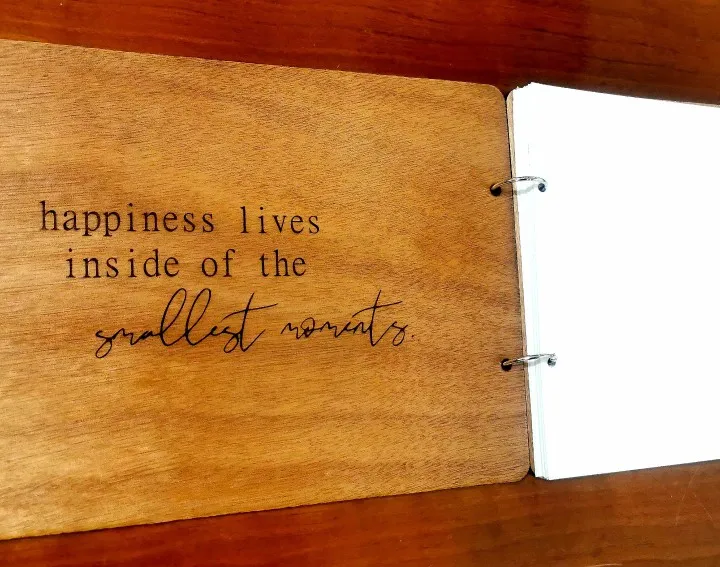 happiness lives
inside of the
smallest moments.